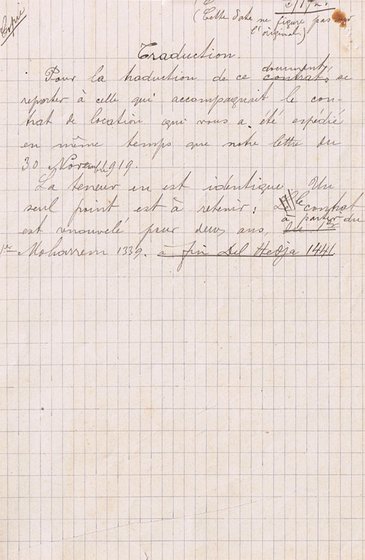 Copie
(Cette date ne figure pas sur
l'original)
Traduction.
Pour la traduction de ce document contrat, se
reporter à celle qui accompagnait le con-
trat de location qui vous a été expédié
en même temps que notre lettre du
30 Novembre 1919.
La teneur en est identique. Un
seul point est à retenir: Le contrat
est renouvelé pour deux ans, à partir du
1er Moharrem 1339. à fin Del Hedja 1441